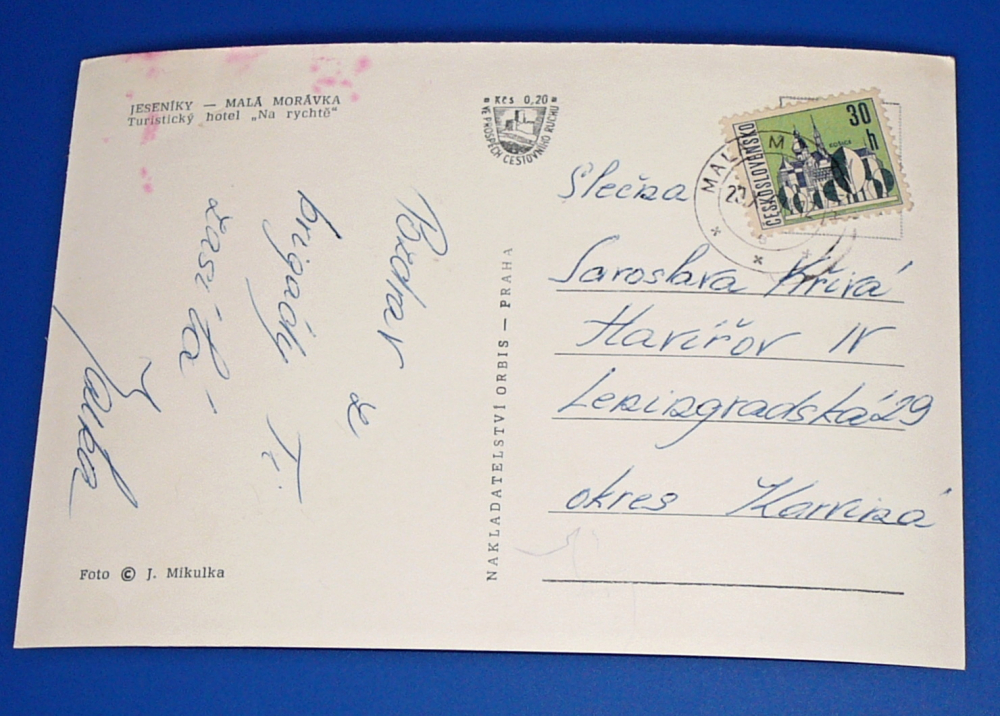 JESENÍKY — MALÁ MORÁVKA
Turistický hotel „Na rychtě"
Kčs 0,20
VE PROSPĚCH CESTOVNÍHO RUCHU
ČESKOSLOVENSKO
30 h
KOŠICE
MAL M
Pozdrav z
brigády Ti
zasílá
Foto © J. Mikulka
NAKLADATELSTVÍ ORBIS — PRAHA
Slečna
Jaroslava Křivá
Havířov IV
Leningradská 29
okres Karviná